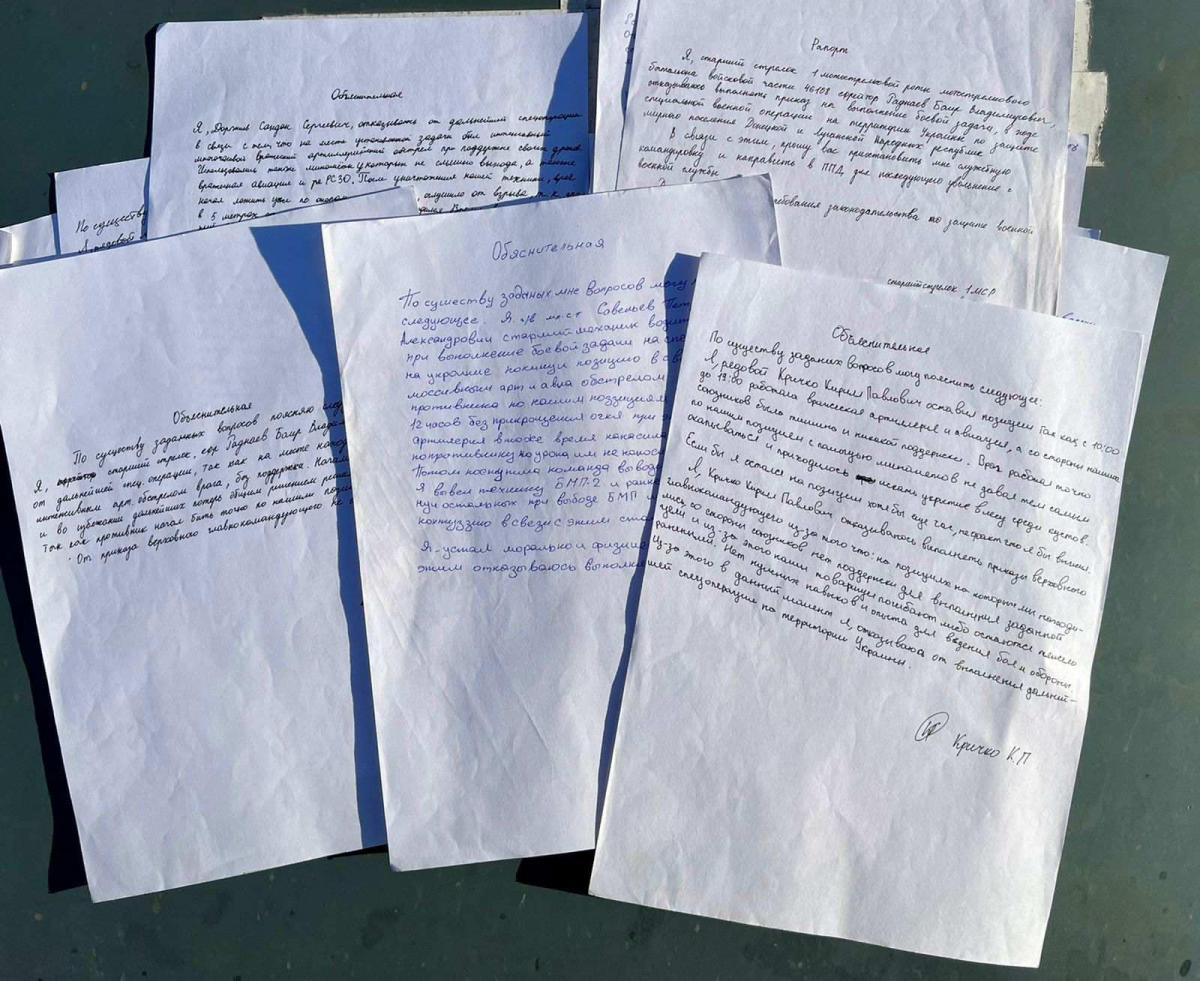 Объяснительная
Я, Доржиев Сандан Сергеевич, отказываюсь от дальнейшей спецоперации
в связи с тем что на месте
Использовались также миномёты у которых не слышно выхода, а также
вражеская авиация и рс РСЗО. После уничтожения нашей техники, враг
в 5 метрах
Рапорт
Я, старший стрелок 1 мотострелковой роты мотострелкового
батальона войсковой части 46108 ефрейтор Раднаев Баир Владимирович,
отказываюсь выполнять приказ на выполнение боевой задачи, в ходе
специальной военной операции на территрии Украйны по защите
мирного населения Донецкой и Луганской Народных республик
В связи с этим, прошу вас приостановить мне служебную
командировку и направить в ППД, для последующего увольнения с
военской службы
требования законодательства по защите военной
старший стрелок 1 МСР
По существу
Объяснительная
По существу заданных вопросов поясняю следу
Я, старший стрелок, ефр Раднаев Баир Влади
от дальнейшей спец. операции, так как на месте наход
интенсивным арт. обстрелом врага, без поддержки. Начали
и во избежании дальнейших потерь общим решением реши
так как противник начал бить точно по нашим позиц
От приказа верховного главнокамандующего не
Обяснительная
По сушеству заданых мне вопросов могу
следующее. Я г/в мл.с-т Савельев Пет
Александрович старший механик водит
при выполнение боевой задачи на спе
на украине покинул позицию в св
моссивным арт и авиа обстрелом
противника по нашим поззициям
12 часов без прикрощения огня при э
артилерия в тоже время наносила
по противнику но урона им не нанос
Потом поступила команда выводи
Я вывел технику БМП-2 и ране
ну и остальных при выводе БМП
контуззию в связи с этим ста
Я устал морально и физиче
этим отказываюсь выполня
Объяснительная
По существу заданих вопросов могу пояснить следующее:
Я, редовой Кричко Кирил Павлович оставил позиции так как с 10:00
до 19:00 работала вражеская артилерия и авиация, а со стороны наших
союзников было тишина и никакой поддержки. Враг работал точно
по нашим позициям с помощью минометов не давая тем самим
окапываться и приходилось искать укрытие в лесу среди кустов.
Если бы я остался на позиции хотя бы еще час, нефакт что я бы выжил.
Я, Кричко Кирил Павлович отказиваюсь выполнять приказы верховного
главнокамандующего из-за того что: на позициях на которых мы находи-
лись со стороны союзников нет поддержки для выполнения заданной
цели и из-за этого нами товарищи погибают либо остаются тяжело
раненими. Нет нужных навыков и опыта для ведения боя и обороны.
Из-за этого в данный момент я, отказываюсь от выполнения дальней-
шей спецоперации на территории Украины.
Кричко К.П